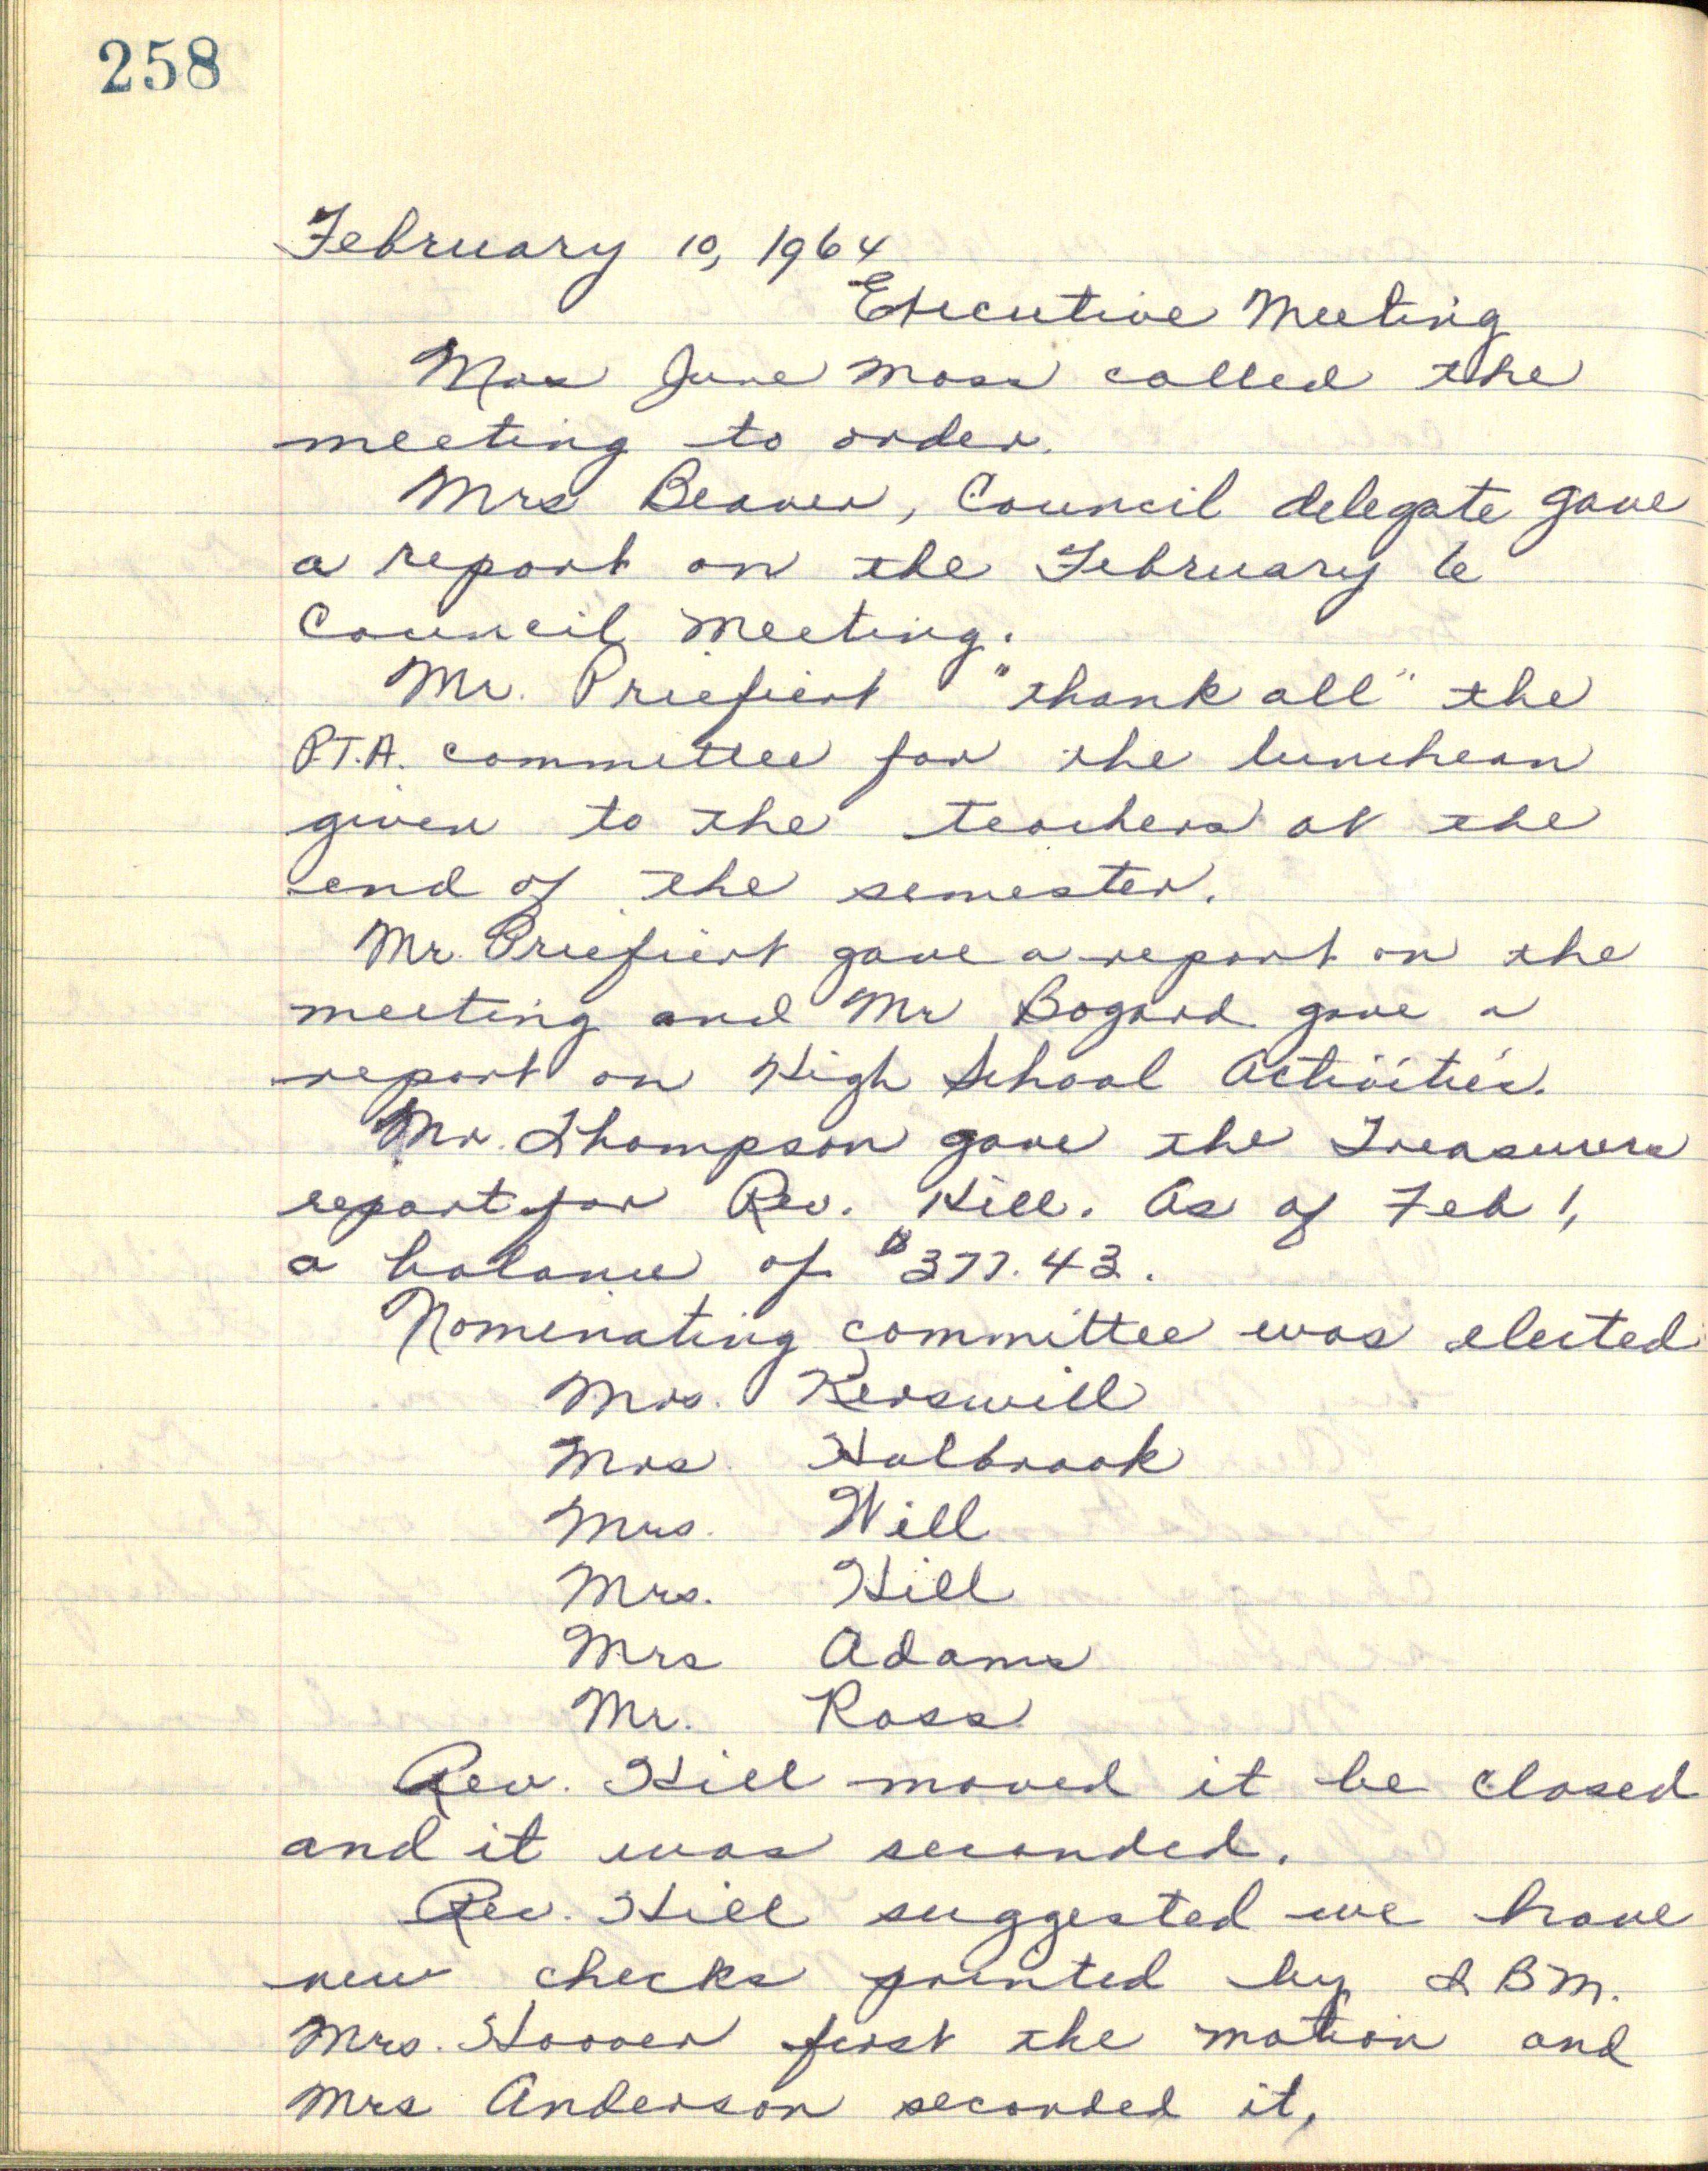 258
February 10, 1964
Executive Meeting
Mrs June Moss called the
meeting to order.
Mrs Beaver, Council delegate gave
a report on the February 6
Council Meeting.
Mr. Priefert "thank all" the
P.T.A. committee for the luncheon
given to the teachers at the
end of the semester.
Mr. Priefert gave a report on the
meeting and Mr Bogard gave a
report on High School Activities.
Mr. Thompson gave the Treasurers
report for Rev. Hill. As of Feb 1,
a balance of $377.43.
Nominating committee was elected
Mrs. Kerswill
Mrs. Holbrook
Mrs. Will
Mrs. Hill
Mrs Adams
Mr. Ross
Rev. Hill moved it be closed
and it was seconded.
Rev. Hill suggested we have
new checks printed by I B M.
Mrs. Hoover first the motion and
Mrs Anderson seconded it,